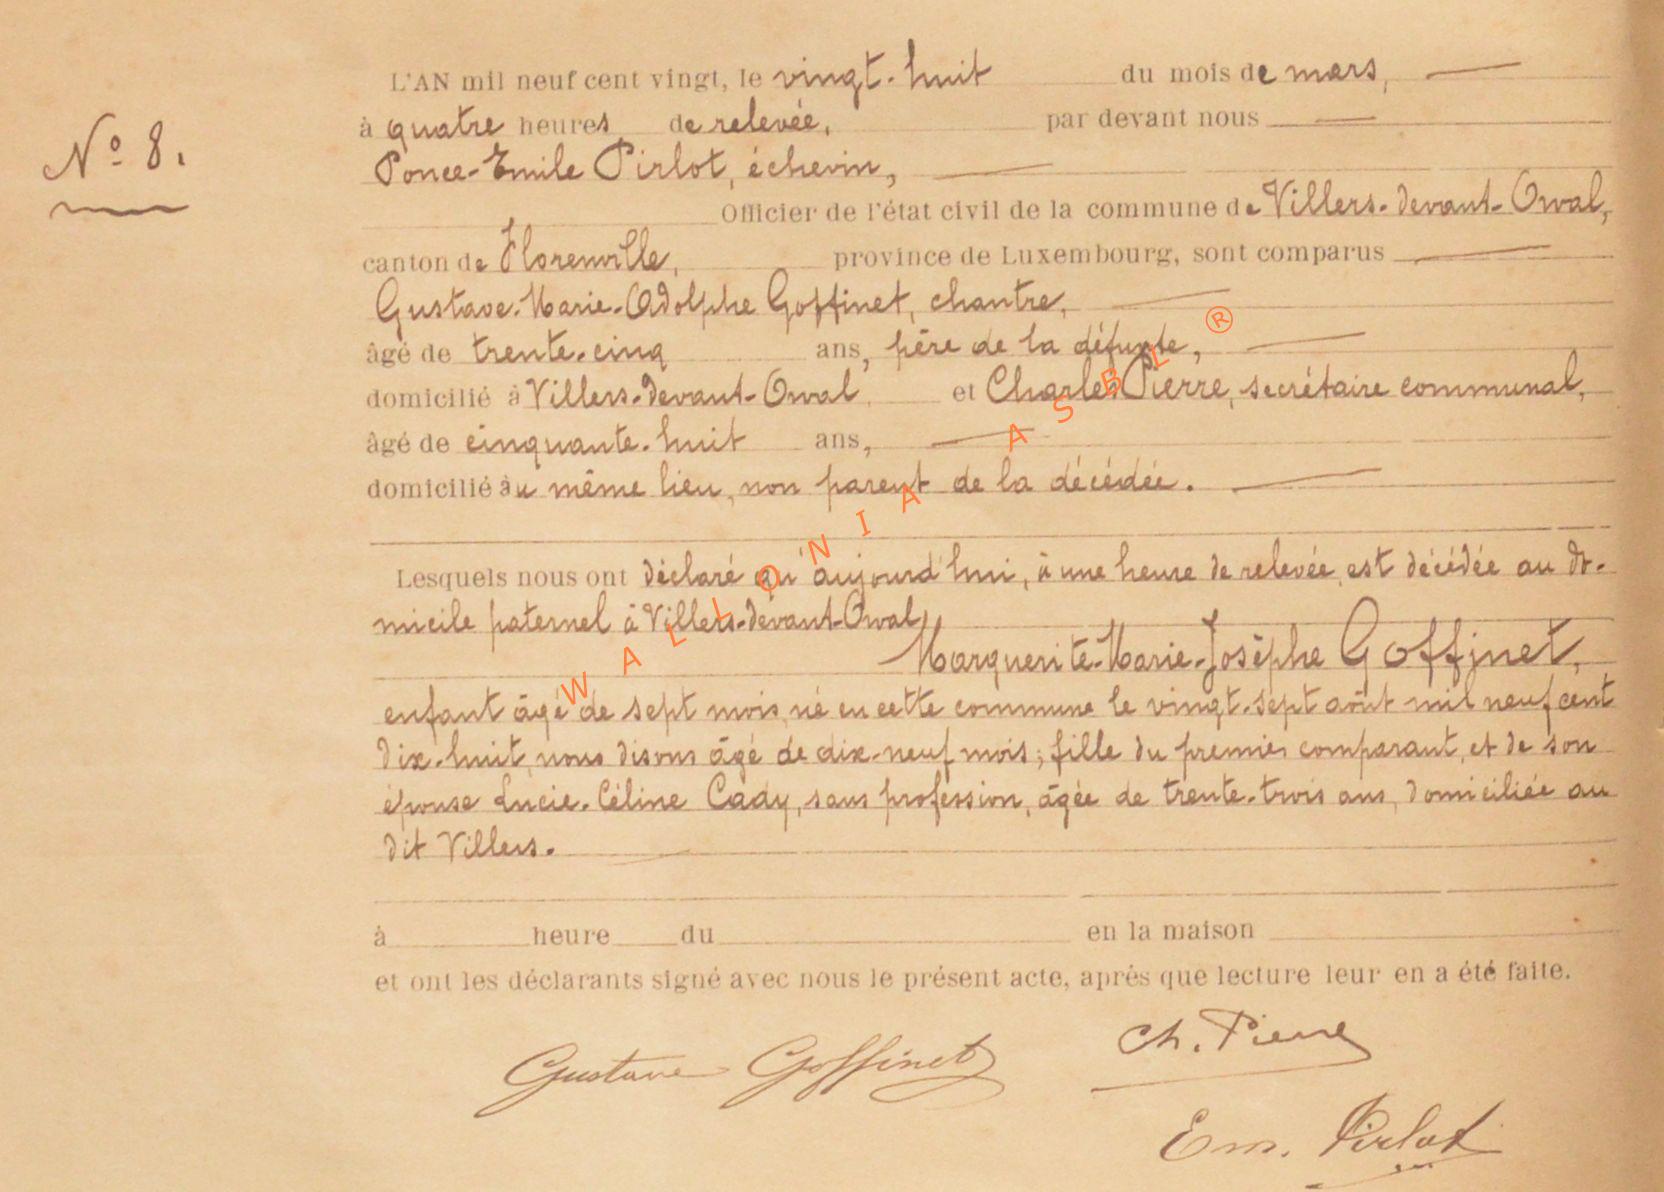 L'AN mil neuf cent vingt, le vingt-huit du mois de mars,
à quatre heures de relevée, par devant nous
Nº 8.
Ponce-Emile Pirlot, échevin,
Officier de l'état civil de la commune de Villers-devant-Orval,
canton de Florenville, province de Luxembourg, sont comparus
Gustave-Marie-Adolphe Goffinet, chantre,
âgé de trente-cinq ans, père de la défunte,
domicilié à Villers-devant-Orval et Charles Pierre, secrétaire communal,
âgé de cinquante-huit ans,
domicilié au même lieu, non parent de la décédée.
Lesquels nous ont déclaré qu'aujourd'hui, à une heure de relevée, est décédée au do-
micile paternel à Villers-devant-Orval,
Marguerite-Marie-Josèphe Goffinet,
enfant âgé de sept mois, né en cette commune le vingt-sept août mil neuf cent
dix-huit, nous disons âgé de dix-neuf mois; fille du premier comparant, et de son
épouse Lucie-Céline Cady, sans profession, âgée de trente-trois ans, domiciliée au
dit Villers.
à heure du en la maison
et ont les déclarants signé avec nous le présent acte, après que lecture leur en a été faite.
Gustave Goffinet
Ch. Pierre
Em. Pirlot
WALLONIA ASBL ®